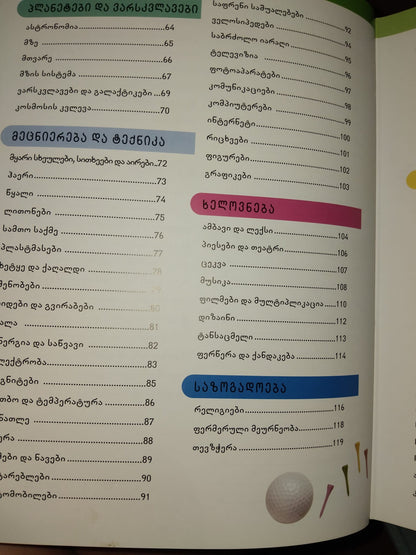 პლანეტები და ვარსკვლავები
ასტრონომია 64
მზე 65
მთვარე 66
მზის სისტემა 67
ვარსკვლავები და გალაქტიკები 69
კოსმოსის კვლევა 70
მეცნიერება და ტექნიკა
მყარი სხეულები, სითხეები და აირები 72
ჰაერი 73
წყალი 74
ლითონები 75
სამთო საქმე 76
პლასტმასები 77
ხეტყე და ქაღალდი 28
მენობები 29
იდები და გვირაბები 80
ალა 81
ნერგია და საწვავი 82
ლექტრობა 83
გნიტები 85
თბო და ტემპერატურა 86
ნათლე 87
ერა 88
მები და ნავები 89
ტარებლები 90
ტომობილები 91
საფრენი საშუალებები 92
ველოსიპედები 94
საბრძოლო იარაღი 95
ტელევიზია 96
ფოტოაპარატები 97
კომუნიკაციები 98
კომპიუტერები 99
ინტერნეტი 100
რიცხვები 101
ფიგურები 102
გრაფიკები 103
ხელოვნება
ამბავი და ლექსი 104
პიესები და თეატრი 106
ცეკვა 107
მუსიკა 108
ფილმები და მულტიპლიკაცია 110
დიზაინი 112
ტანსაცმელი 113
ფერწერა და ქანდაკება 114
საზოგადოება
რელიგიები 116
ფერმერული მეურნეობა 118
თევზჭერა 119